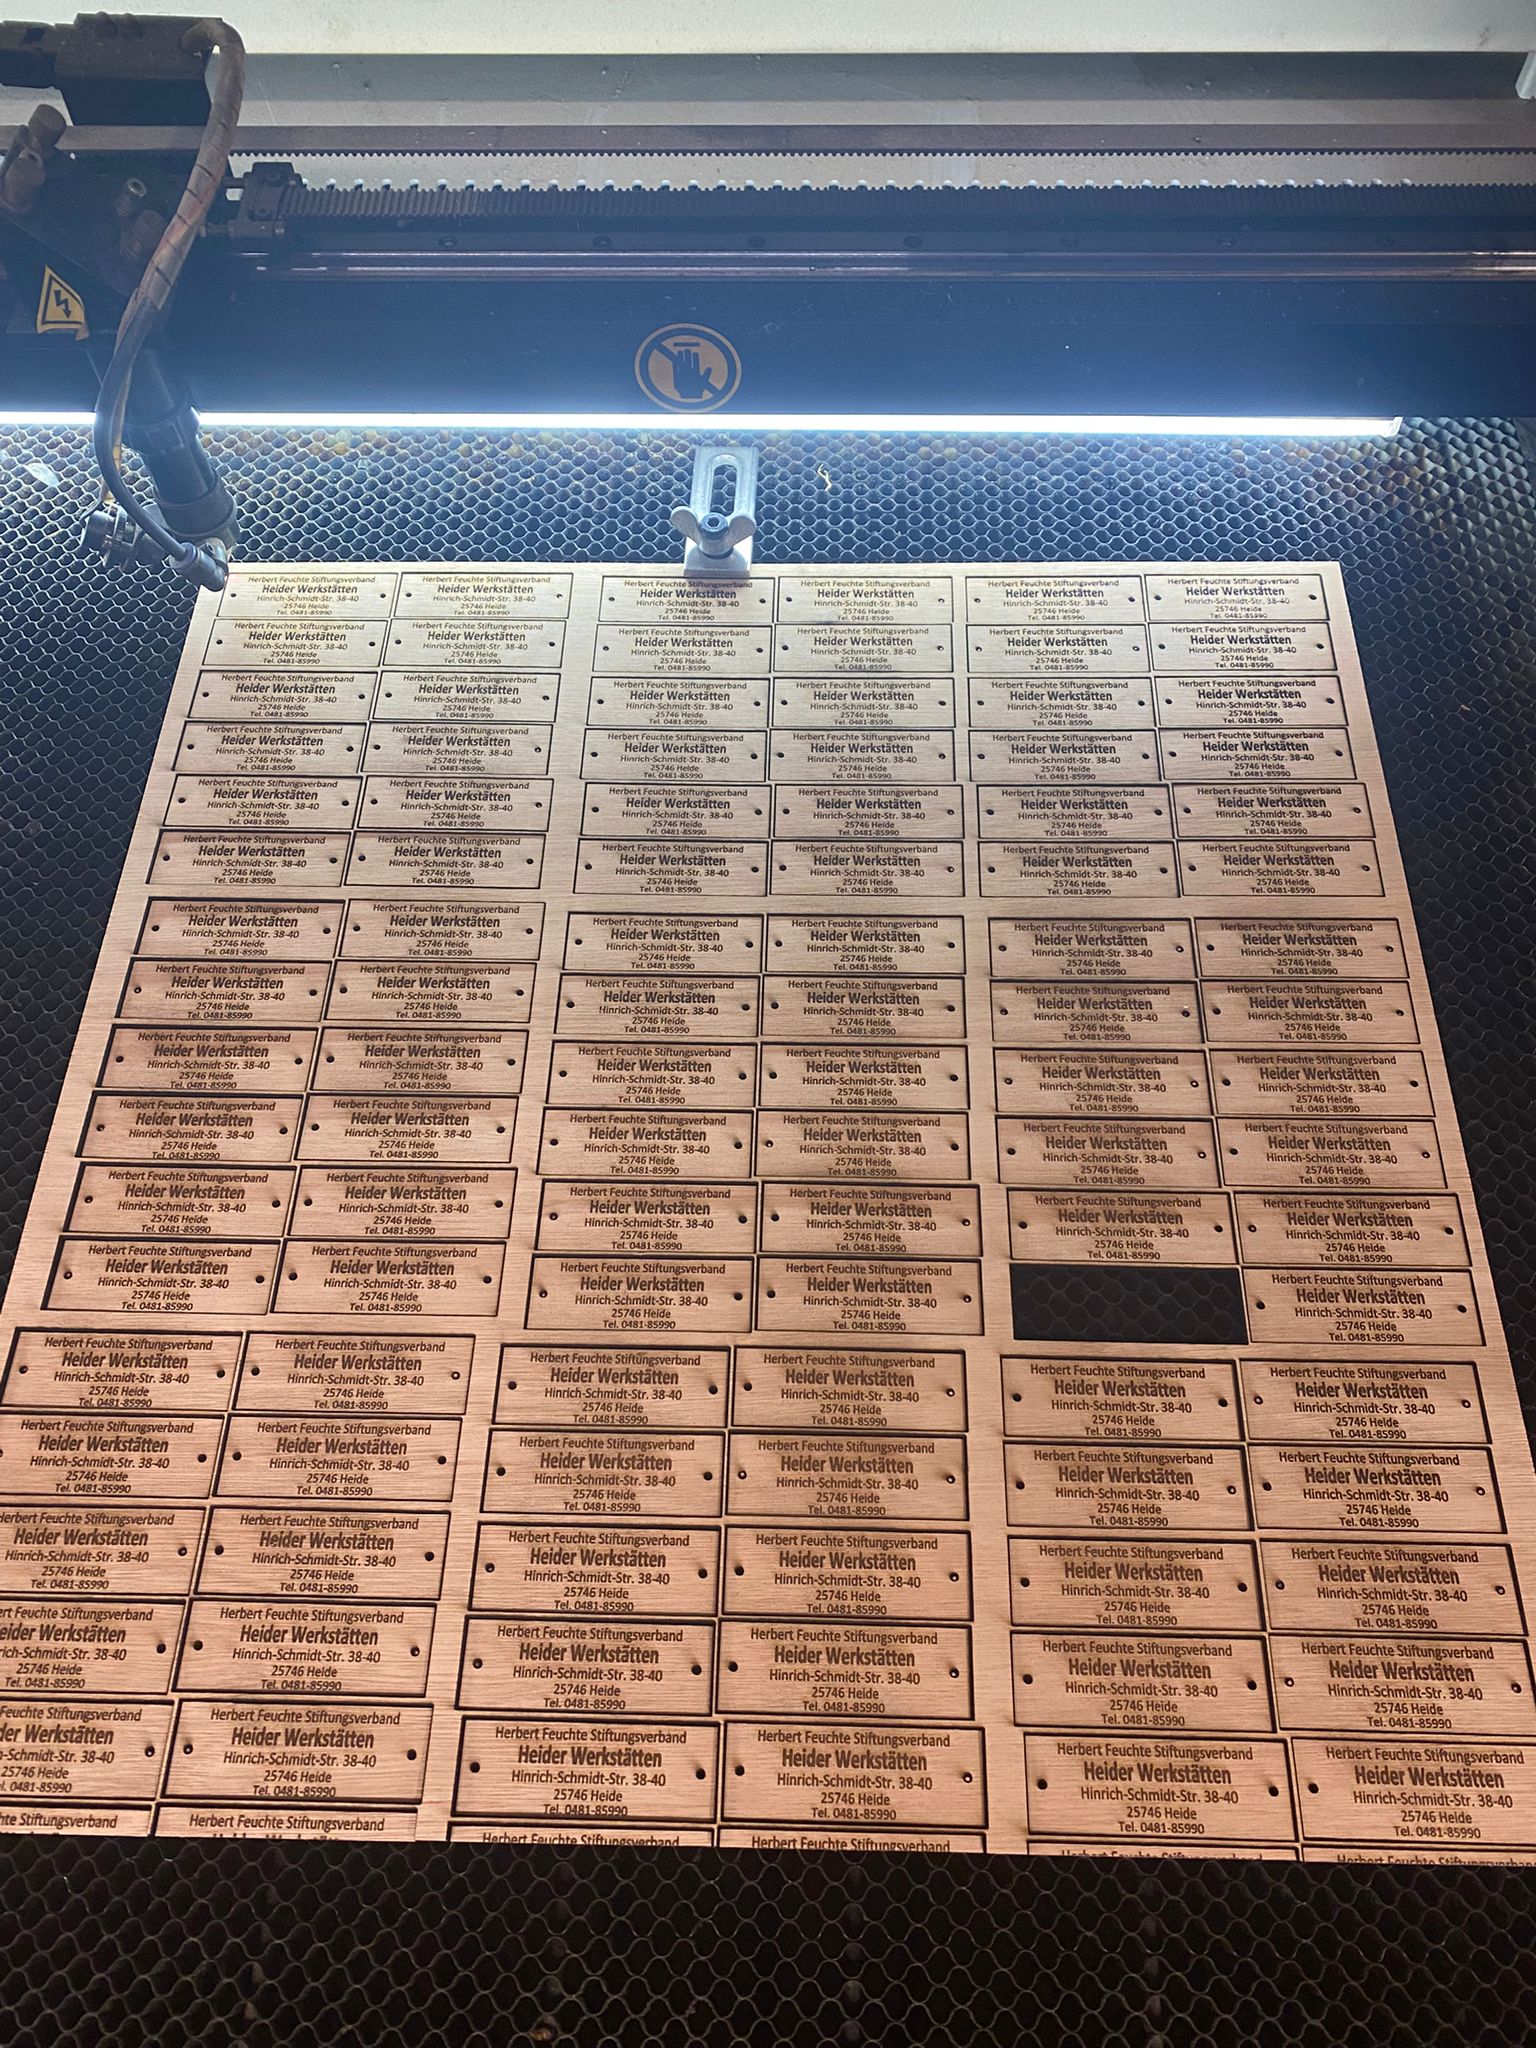 Herbert Feuchte Stiftungsverband
Heider Werkstätten
Hinrich-Schmidt-Str. 38-40
25746 Heide
Tel. 0481-85990